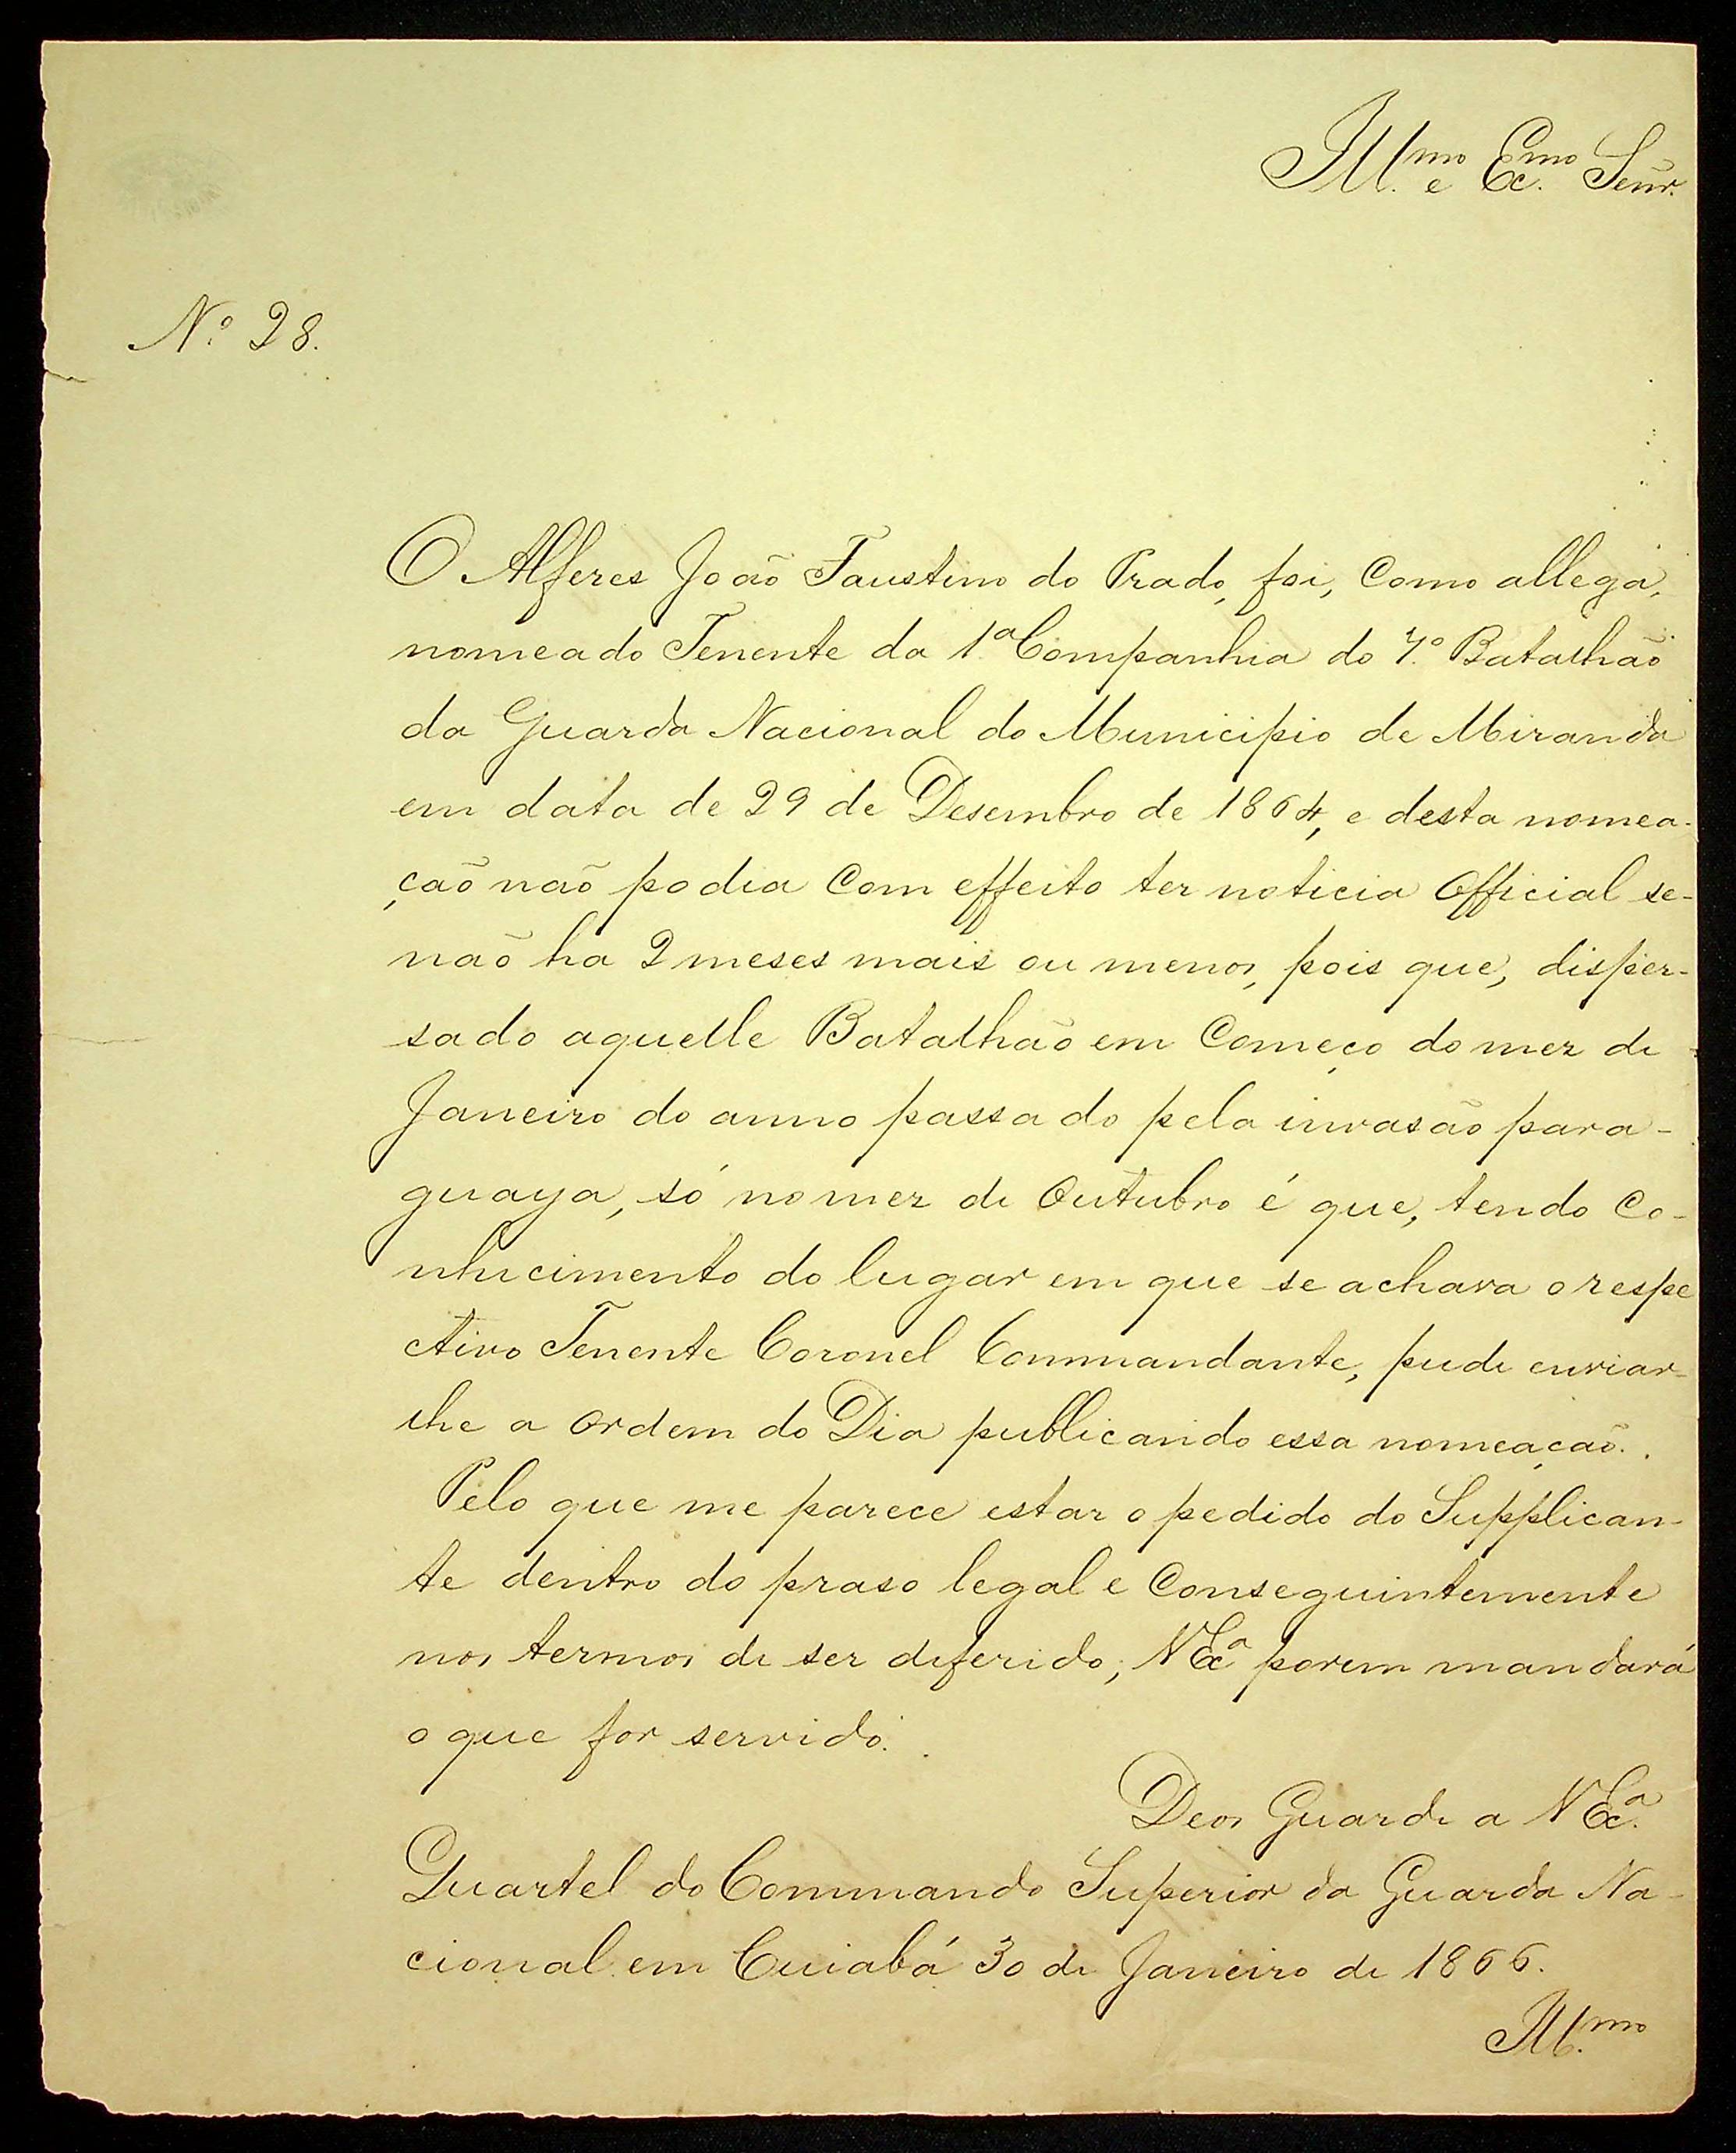 Ill.mo e Ex.mo Senr.
Nº 28.
O Alferes João Faustino do Prado, foi, como allega,
nomeado Tenente da 1ª Companhia do 7º Batalhão
da Guarda Nacional do Municipio de Miranda
em data de 29 de Desembro de 1864, e desta nomea-
ção não podia com effeito ter noticia official se-
não ha 2 meses mais ou menos, pois que, disper-
sado aquelle Batalhão em começo do mez de
Janeiro do anno passado pela invasão para-
guaya, só no mez de Outubro é que, tendo co-
nhecimento do lugar em que se achava o respe
ctivo Tenente Coronel Commandante, pude enviar-
lhe a ordem do Dia publicando essa nomeação.
Pelo que me parece estar o pedido do Supplican-
te dentro do praso legal e conseguintemente
nos termos de ser diferido; V Exª porem mandará
o que for servido.
Deos Guarde a V Exª.
Quartel do Commando Superior da Guarda Na-
cional em Cuiabá 30 de Janeiro de 1866.
Ill.mo